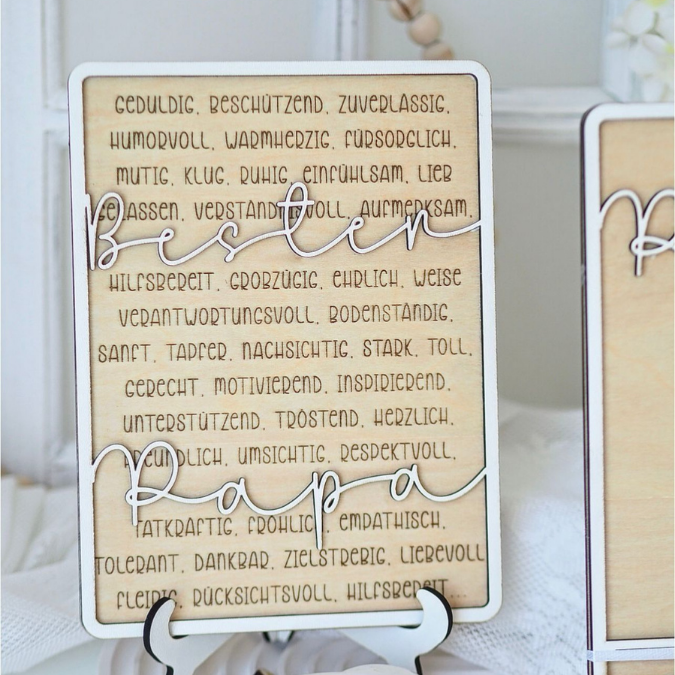 GEDULDIG, BESCHÜTZEND, ZUVERLÄSSIG,
HUMORVOLL, WARMHERZIG, FÜRSORGLICH,
MUTIG, KLUG, RUHIG, EINFÜHLSAM, LIEB
GELASSEN, VERSTÄNDNISVOLL, AUFMERKSAM,
Besten
HILFSBEREIT, GROßZÜGIG, EHRLICH, WEISE
VERANTWORTUNGSVOLL, BODENSTÄNDIG,
SANFT, TAPFER, NACHSICHTIG, STARK, TOLL,
GERECHT, MOTIVIEREND, INSPIRIEREND,
UNTERSTÜTZEND, TRÖSTEND, HERZLICH,
FREUNDLICH, UMSICHTIG, RESPEKTVOLL,
Papa
TATKRÄFTIG, FRÖHLICH, EMPATHISCH,
TOLERANT, DANKBAR, ZIELSTREBIG, LIEBEVOLL
FLEIßIG, RÜCKSICHTSVOLL, HILFSBEREIT...